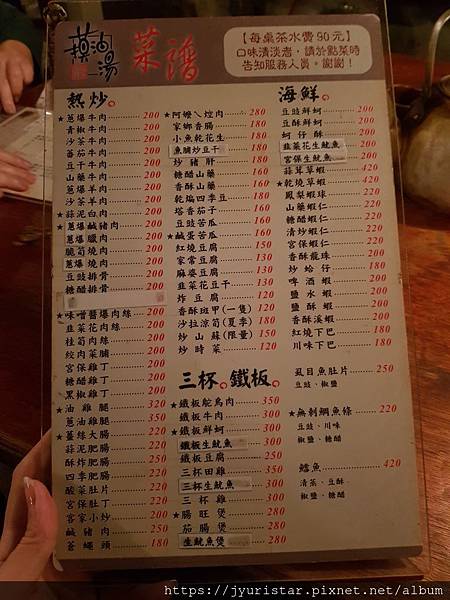 油湯
菜譜
【每桌茶水費90元】
口味清淡者，請於點菜時
告知服務人員。謝謝！
熱炒
★蔥爆牛肉 200
青椒牛肉 200
沙茶牛肉 200
番茄牛肉 200
豆干牛肉 200
山藥牛肉 200
蔥爆羊肉 200
沙茶羊肉 200
★蒜泥白肉 200
★蔥爆鹹豬肉 200
蔥爆臘肉 200
脆筍燒肉 200
蔥爆燒肉 200
豆豉排骨 200
糖醋排骨 200
★味噌醬爆肉絲 200
韭菜花肉絲 200
桂筍肉絲 200
絞肉菜脯 200
宮保雞丁 200
糖醋雞丁 200
黑椒雞丁 200
★油雞腿 320
蔥油雞腿 350
★薑絲大腸 220
蒜泥肥腸 220
酥炸肥腸 250
四季肥腸 220
酸菜肚片 220
宮保肚丁 220
客家小炒 200
鹹豬肉 250
蒼蠅頭 180
★阿嬤ㄟ焢肉 280
家鄉香腸 180
小魚乾花生 180
魚脯炒豆干 180
炒豬肝 180
糖醋山藥 180
香酥山藥 180
乾煸四季豆 180
塔香茄子 160
豆豉苦瓜 160
★鹹蛋苦瓜 160
紅燒豆腐 150
家常豆腐 130
麻婆豆腐 130
韭菜花豆干 130
炸豆腐 130
香酥斑甲(一隻) 120
沙拉涼筍(夏季) 180
炒山蘇(限量) 150
炒時菜 120
三杯。鐵板
★鐵板鴕鳥肉 350
鐵板牛肉 300
★鐵板鮮蚵 300
鐵板生魷魚 300
鐵板豆腐 250
三杯田雞 350
三杯生魷魚 300
三杯雞 300
★腸旺煲 300
茄腸煲 280
生魷魚煲 280
海鮮
豆豉鮮蚵 200
豆酥鮮蚵 200
蚵仔酥 200
韭菜花生魷魚 200
宮保生魷魚 200
蒜茸草蝦 420
★乾燒草蝦 420
鳳梨蝦球 220
山藥蝦仁 220
糖醋蝦仁 220
清炒蝦仁 220
宮保蝦仁 220
香酥龍珠 220
炒蛤仔 180
啤酒蝦 220
鹽水蝦 220
鹽酥蝦 220
香酥溪蝦 220
紅燒下巴 220
川味下巴 220
虱目魚肚片 220
豆豉、椒鹽
★無刺鯛魚條 220
豆豉、川味
椒鹽、糖醋
鱈魚 420
清蒸、豆酥
椒鹽、糖醋
https://jyuristar.pixnet.net/album